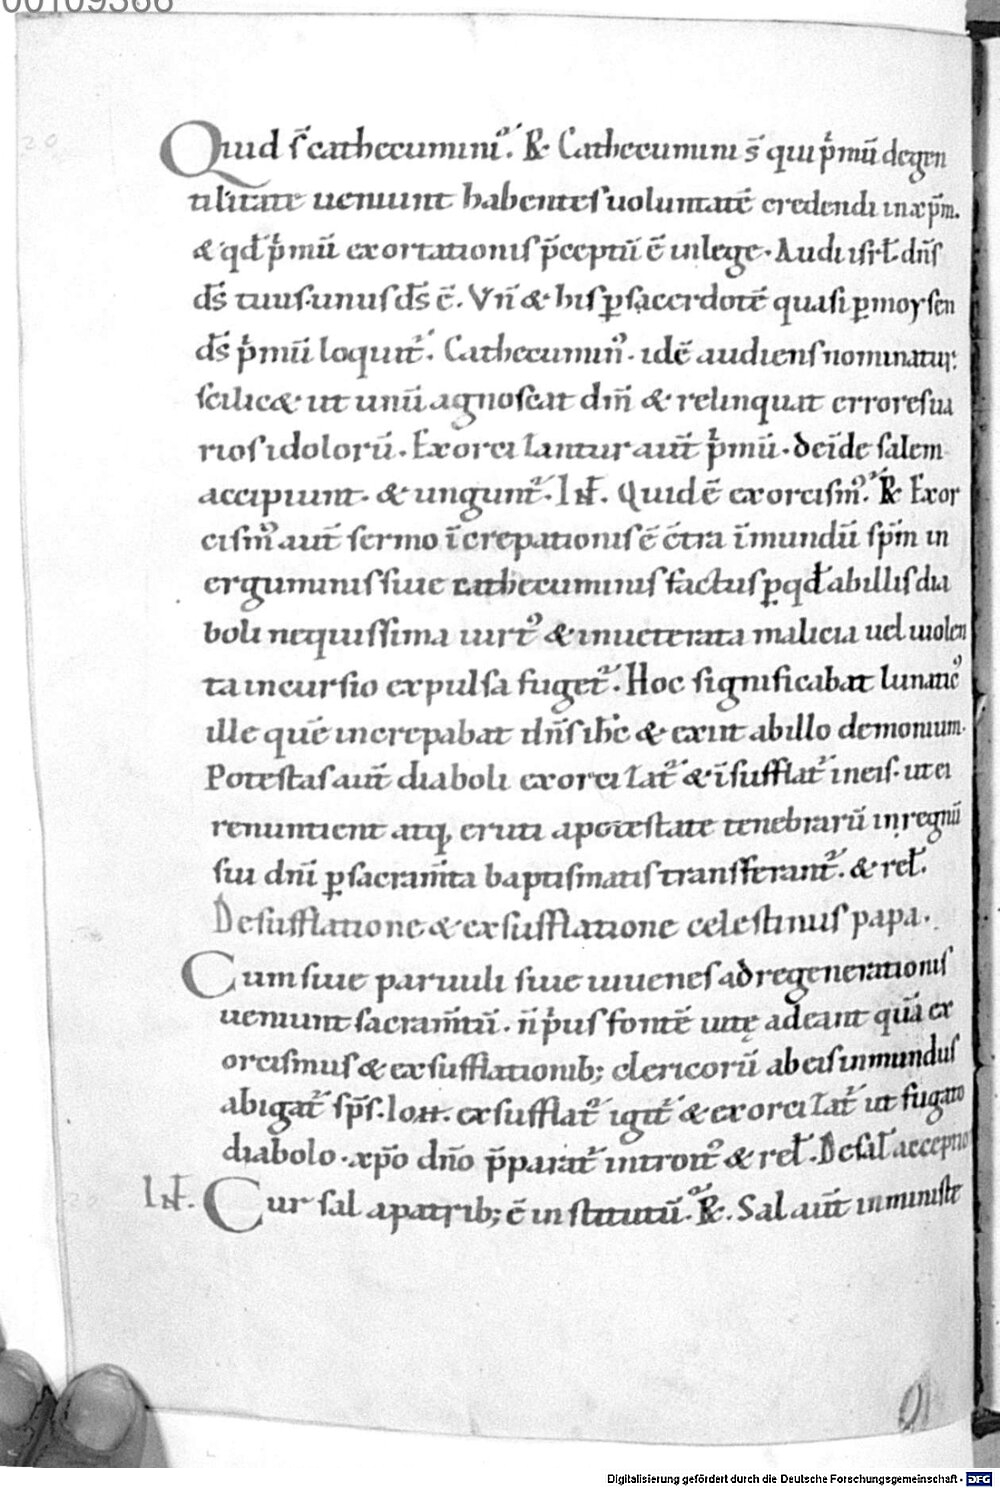 00109366
Quid s̄ cathecumini. R. Cathecumini s̄ qui p̍mū degen
tilitate ueniunt habentes uoluntatē credendi in xp̄m.
& qđ p̍mū exortationis p̄ceptū ē in lege. Audi isrł. dn̄s
ds̄ tuus. unus ds̄ ē. Vn̄ & his ꝑ sacerdotē quasi ꝑ moysen
ds̄ p̍mū loquit᷑. Cathecuminꝰ. idē audiens nominatur.
scilic& ut unū agnoscat dm̄ & relinquat errores ua
rios idolorū. Exorcizantur aūt p̍mū. deīde salem
accipiunt. & ungunt᷑. Int̄. Quid ē exorcismꝰ. R. Exor
cismꝰ aūt sermo īcrepationis ē c̄tra īmundū sp̄m in
erguminis siue cathecuminis factus ꝑ qđ ab illis dia
boli nequissima uirtꝰ & inueterata malicia uel uiolen
ta incursio expulsa fuget᷑. Hoc significabat lunaticꝰ
ille quē increpabat dn̄s ih̄c & exiit ab illo demonium.
Potestas aūt diaboli exorcizat᷑ & īsufflat᷑ in eis. ut ei
renuntient atq; eruti a potestate tenebrarū in regnū
sui dn̄i ꝑ sacram̄ta baptismatis transferant᷑. & rel̄.
De sufflatione & exsufflatione celestinus papa.
Cum siue paruuli siue iuuenes ad regenerationis
ueniunt sacram̄tū. n̄ p̍us fontē uitę adeant quā ex
orcismus & exsufflationib; clericorū ab eis inmundus
abigat᷑ sp̄s. Ioħ. exsufflat᷑ igit᷑ & exorcizat᷑ ut fugato
diabolo. xp̄o dn̄o p̄parat᷑ introitꝰ & rel̄. De sał acceptio
Int̄. Cur sal a patrib; ē institutū. R. Sal aūt in ministe
Digitalisierung gefördert durch die Deutsche Forschungsgemeinschaft - DFG